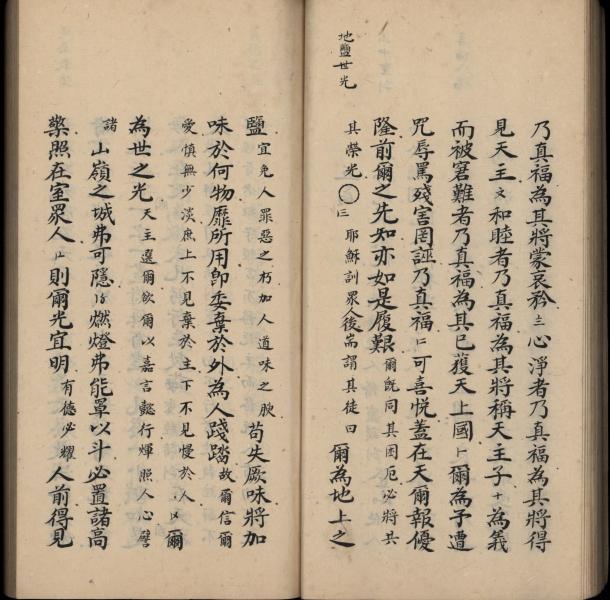 地鹽世光
乃真福為其將蒙哀矜心淨者乃真福為其將得
見天主〩和睦者乃真福為其將稱天主子十為義
而被窘難者乃真福為其已獲天上國爾為予遭
咒辱罵殘害罔誣乃真福可喜悅蓋在天爾報優
隆前爾之先知亦如是履艱爾旣同其困厄必將共
其榮光〇耶穌訓眾人後耑謂其徒曰爾為地上之
鹽宜免人罪惡之朽加人道味之腴苟失厥味將加
味於何物靡所用卽委棄於外為人踐踏故爾信爾
愛慎無少淡庶上不見棄於主下不見慢於人爾
為世之光天主選爾欲爾以嘉言懿行煇照人心譬
諸山嶺之城弗可隱燃燈弗能罩以斗必置諸高
檠照在室眾人則爾光宜明有德必耀人前得見